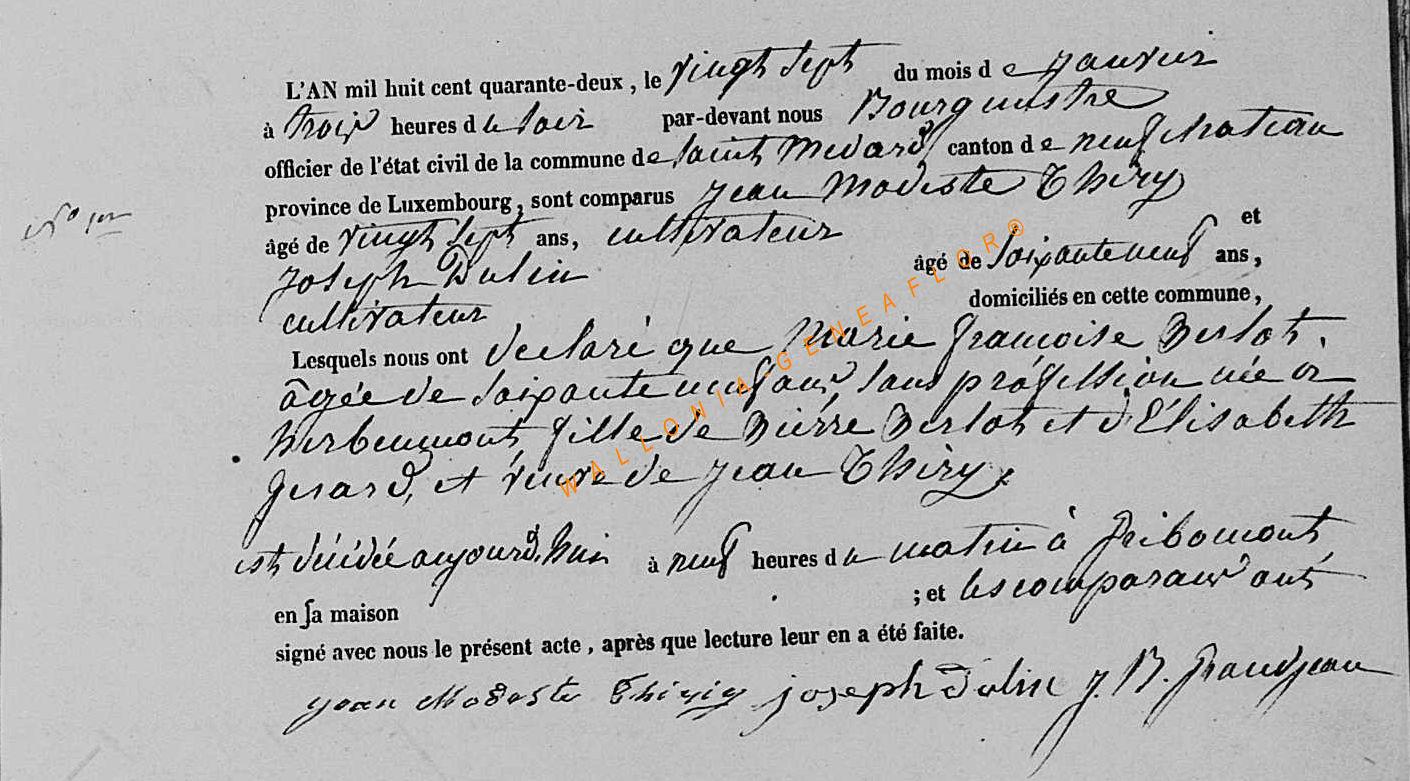 L'AN mil huit cent quarante-deux, le vingt sept du mois de janvier
à trois heures du soir par-devant nous Bourguestre
officier de l'état civil de la commune de Saint Medard, canton de neufchateau
province de Luxembourg, sont comparus Jean Modeste Thiry
âgé de vingt sept ans, cultivateur et
Joseph Dulin âgé de soixante neuf ans,
cultivateur domiciliés en cette commune,
Lesquels nous ont declaré que Marie françoise Berlot.
âgée de soixante neuf ans, sans proféssion née à
herbeumont, fille de Pierre Berlot et d'Élisabeth
Gerard, et veuve de Jean Thiry.
est décédée aujourd'hui à neuf heures du matin à Gribomont
en sa maison ; et les comparans ont
signé avec nous le présent acte, après que lecture leur en a été faite.
jean Modeste Thiry joseph dulin J. B. Grandjean
N°
WALLONIA-GENEAFLOR®